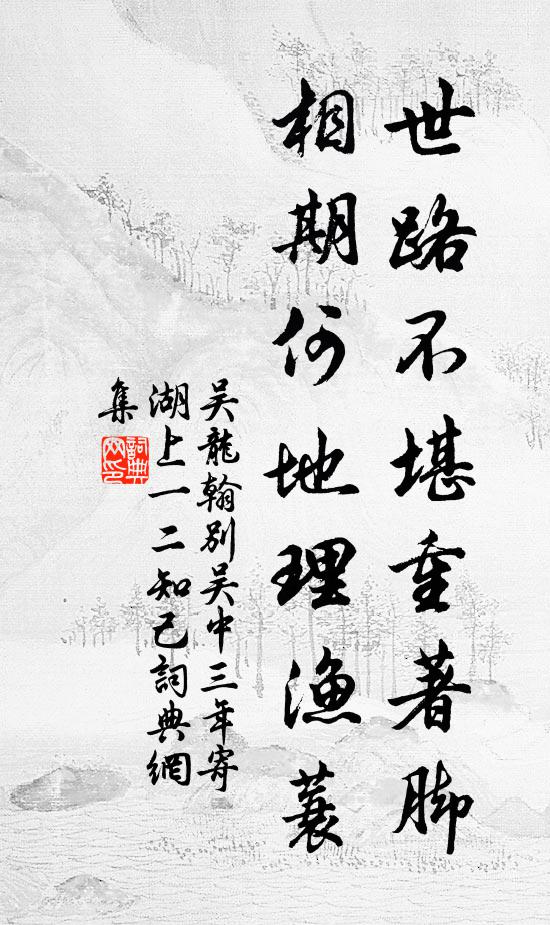 世路不堪重著脚
相期何地理漁蓑
吴龍翰别吴中三年寄
湖上一二知己詞典網
集
詞典网印